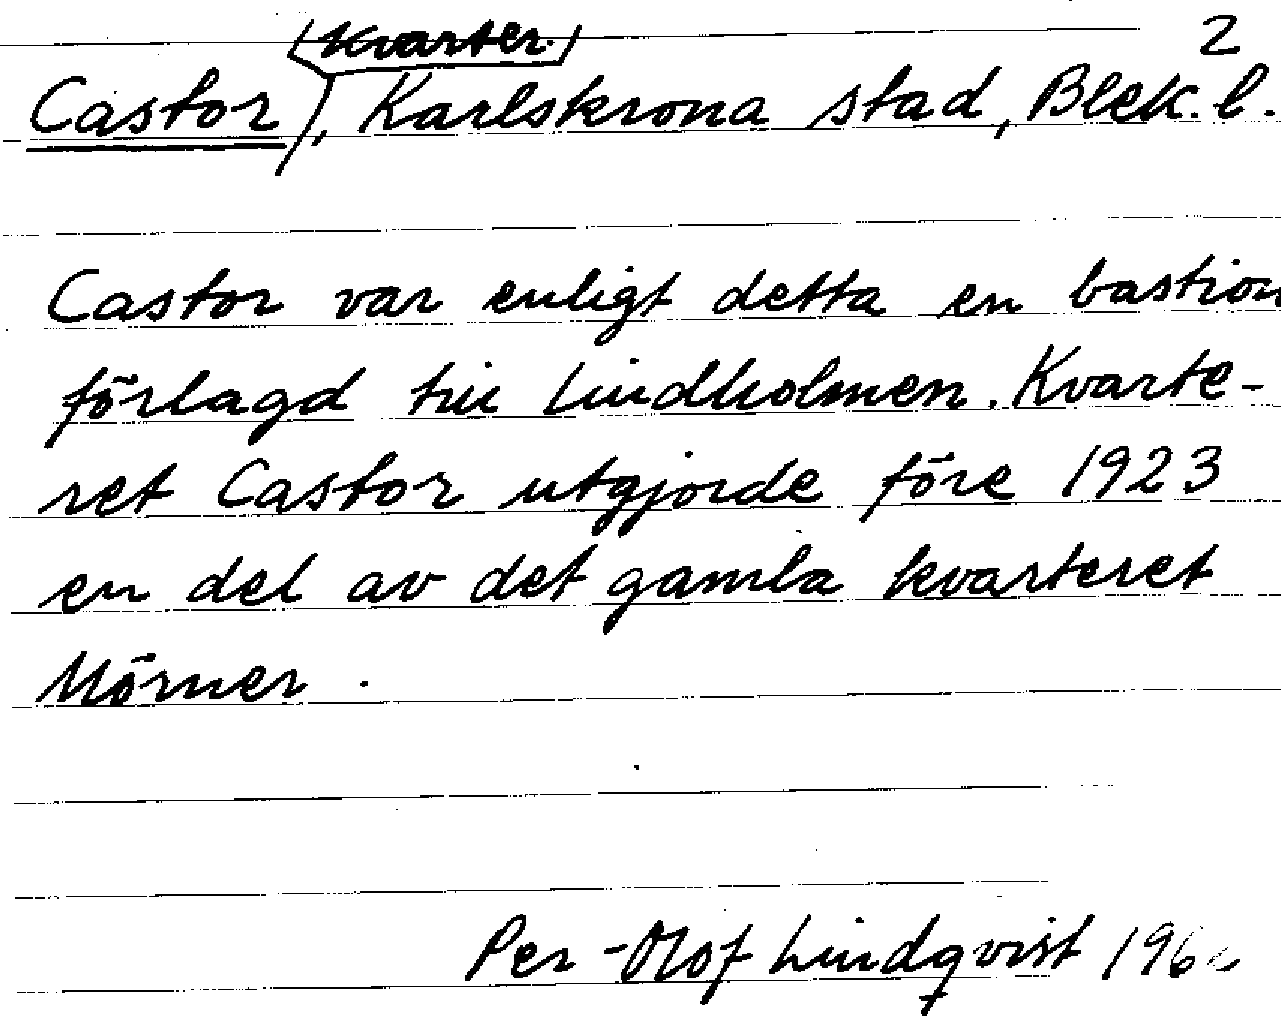 2
(Kvarter.)
Castor, Karlskrona stad, Blek. l.
Castor var enligt detta en bastion
förlagd till Lindholmen. Kvarte-
ret Castor utgjorde före 1923
en del av det gamla kvarteret
Mörner.
Per-Olof Lindqvist